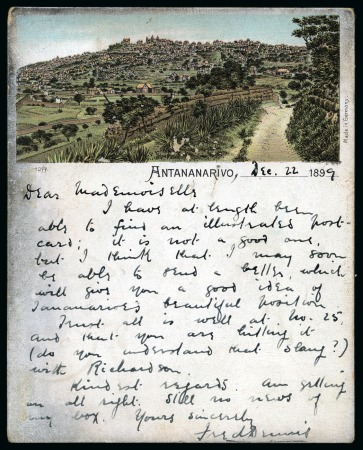 Made in Germany.
ANTANANARIVO, Dec. 22 1899
Dear Mademoiselle
I have at length been
able to find an illustrated post-
card; it is not a good one,
but I think that I may soon
be able to send a better, which
will give you a good idea of
Tananarive's beautiful position.
Trust all is well at No. 25,
and that you are hitting it
(do you understand that slang?)
with Richardson.
Kindest regards. Am getting
on all right. Still no news of
my box. Yours sincerely
Fred Dennis